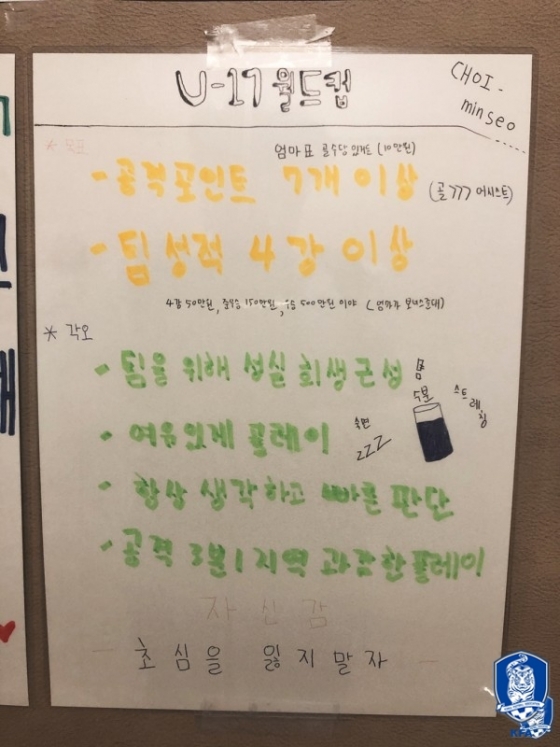 U-17 월드컵
CHOI-
minseo
* 목표
엄마표 골수당 있거든 (10만원)
- 공격포인트 7개 이상
(골 >>> 어시스트)
- 팀성적 4강 이상
4강 50만원, 준우승 150만원, 우승 500만원 이야 (엄마가 보너스준대)
* 각오
- 팀을 위해 성실 희생 근성
몸
수분
스트레칭
- 여유있게 플레이
숙면
zzz
- 항상 생각하고 빠른 판단
- 공격 3분1지역 과감한플레이
자신감
- 초심을 잃지말자 -